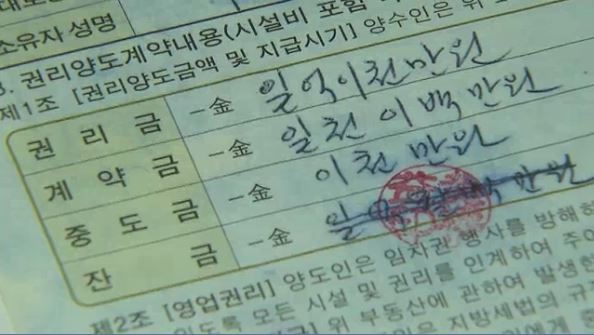 소유자 성명
3. 권리양도계약내용(시설비 포함
제1조 [권리양도금액 및 지급시기] 양수인은 위
권 리 금 一金 일억이천만원
계 약 금 一金 일천이백만원
중 도 금 一金 이천만원
잔 금 一金 만원
제2조 [영업권리] 양도인은 임차권 행사를 방해하
있도록 모든 시설 및 권리를 인계하여 주어
위 부동산에 관하여 발생한
은 지방세법의 규